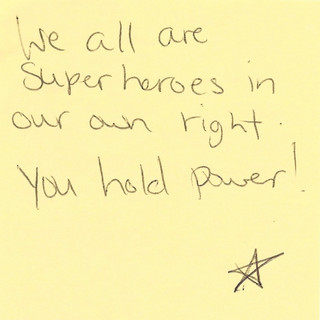 We all are
Superheroes in
our own right.
You hold power!